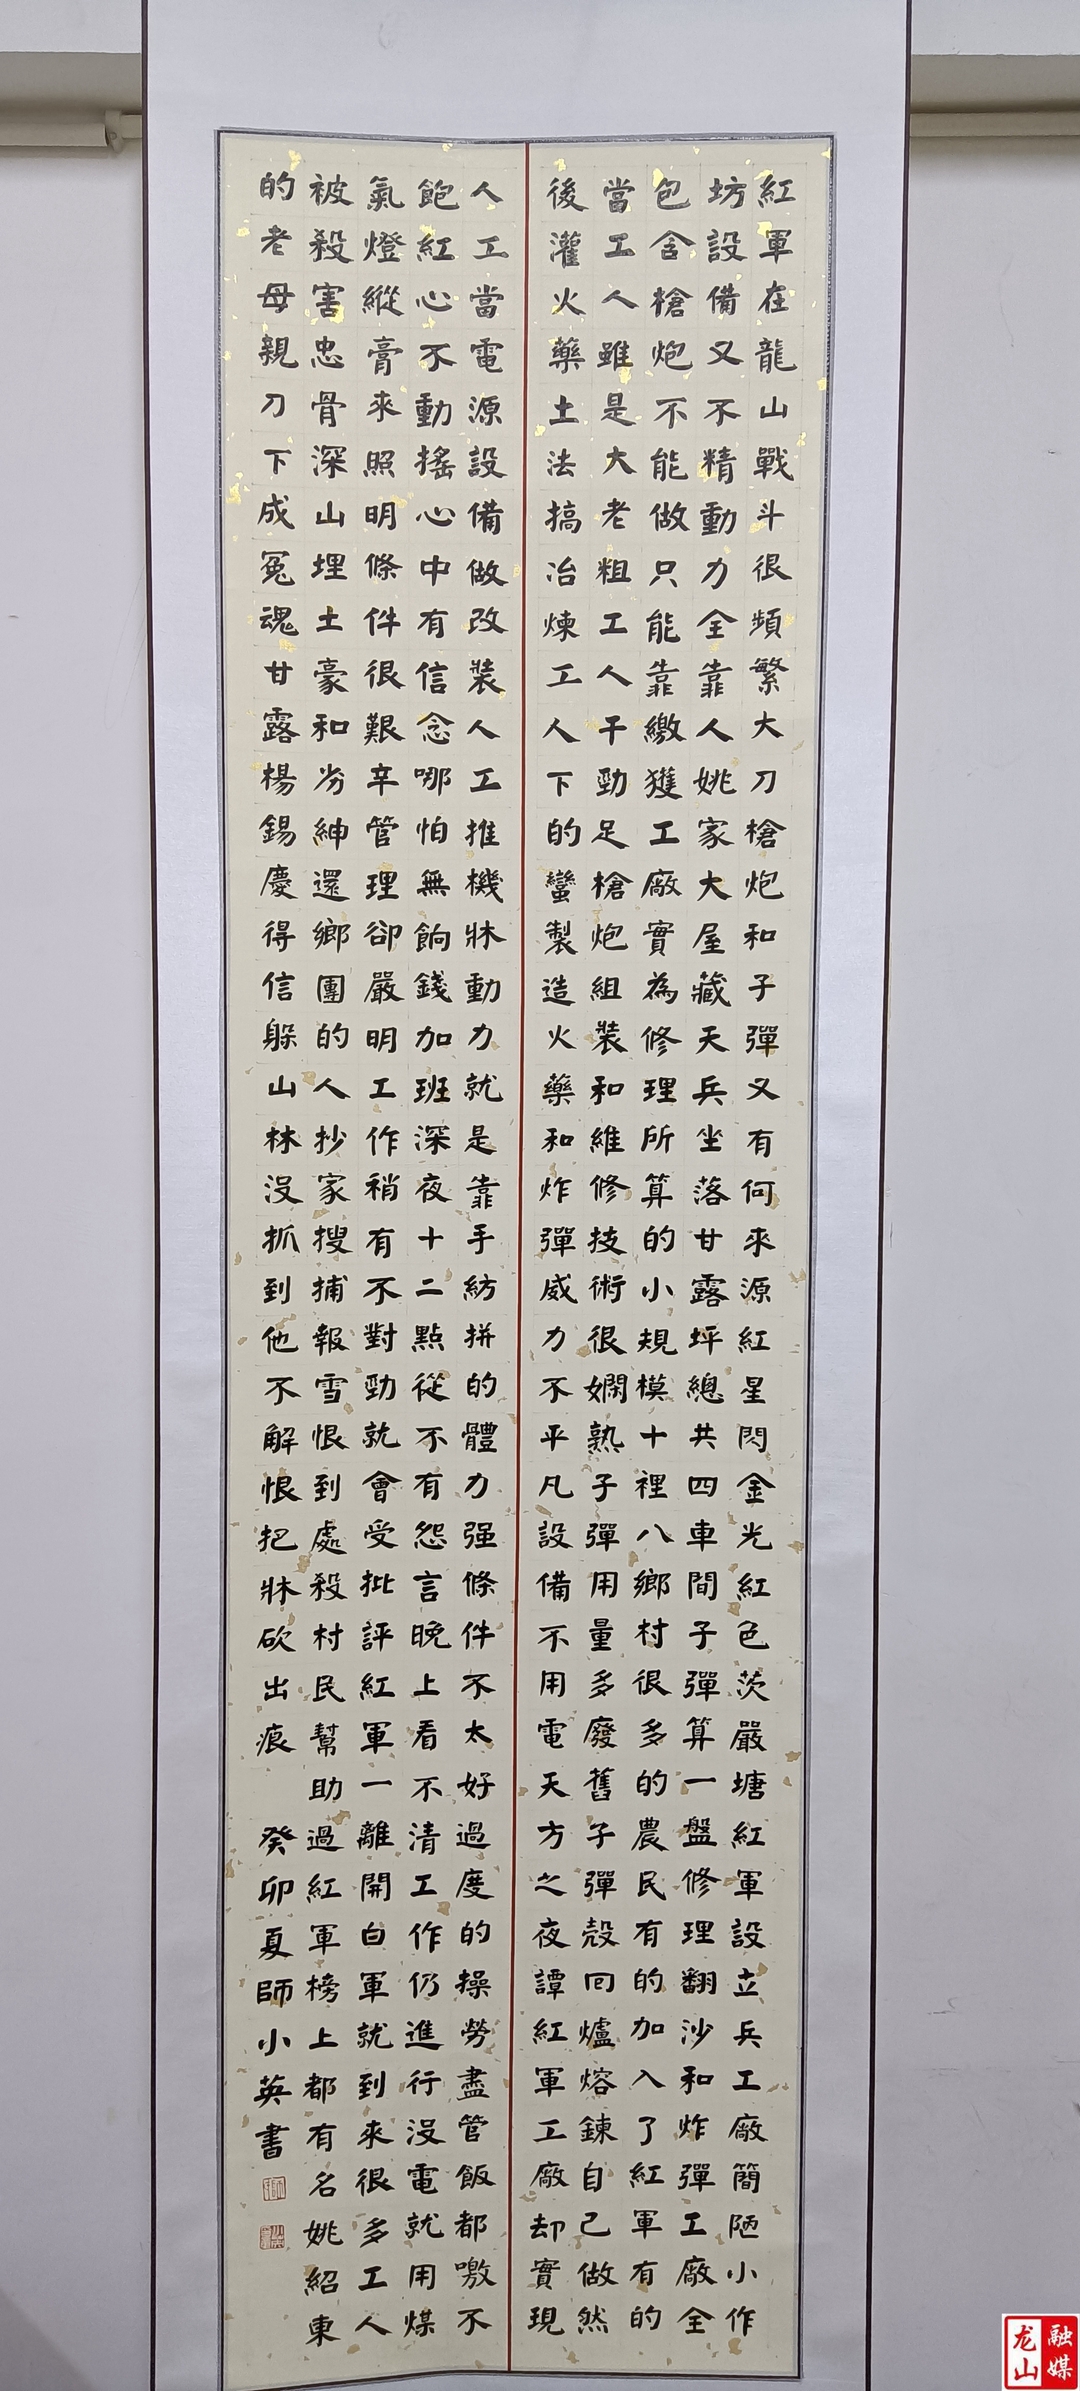 紅軍在龍山戰斗很頻繁大刀槍炮和子彈又有何來源紅星閃金光紅色茨嚴塘紅軍設立兵工廠簡陋小作
坊設備又不精動力全靠人姚家大屋藏天兵坐落甘露坪總共四車間子彈算一盤修理翻沙和炸彈工廠全
包含槍炮不能做只能靠繳獲工廠實為修理所算的小規模十裡八鄉村很多的農民有的加入了紅軍有的
當工人雖是大老粗工人干勁足槍炮組裝和維修技術很嫻熟子彈用量多廢舊子彈殼回爐熔鍊自己做然
後灌火藥土法搞冶煉工人下的蠻製造火藥和炸彈威力不平凡設備不用電天方之夜譚紅軍工廠却實現
人工當電源設備做改裝人工推機牀動力就是靠手紡拼的體力强條件不太好過度的操勞盡管飯都噉不
飽紅心不動搖心中有信念哪怕無餉錢加班深夜十二點從不有怨言晚上看不清工作仍進行沒電就用煤
氣燈縱膏來照明條件很艱辛管理卻嚴明工作稍有不對勁就會受批評紅軍一離開白軍就到來很多工人
被殺害忠骨深山埋土豪和劣紳還鄉團的人抄家搜捕報雪恨到處殺村民幫助過紅軍榜上都有名姚紹東
的老母親刀下成冤魂甘露楊錫慶得信躲山林沒抓到他不解恨把牀砍出痕 癸卯夏師小英書
龙山融媒